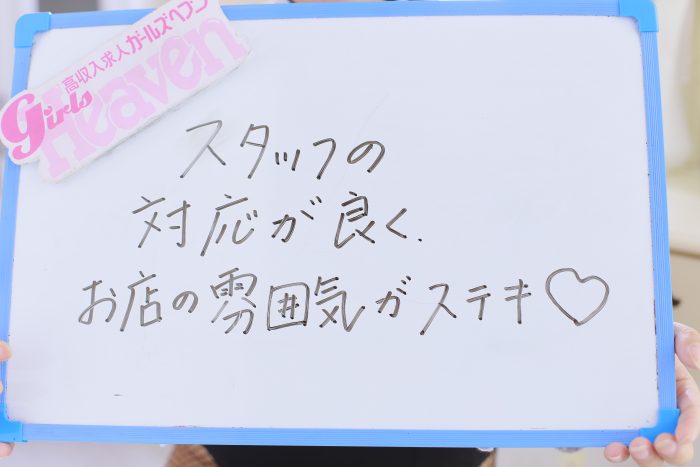 高収入求人ガールズヘブン
girls Heaven
スタッフの
対応が良く、
お店の雰囲気がステキ♡